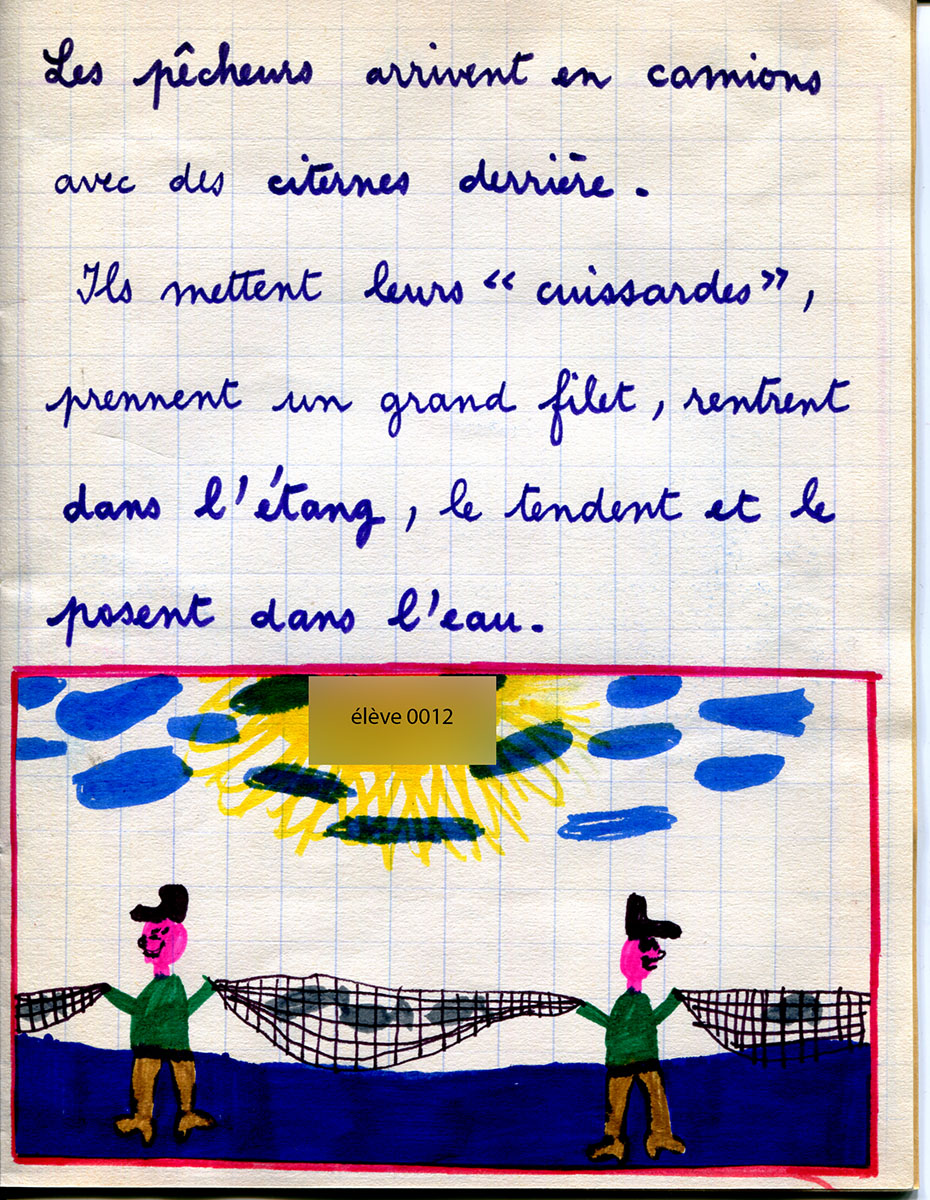 Les pêcheurs arrivent en camions
avec des citernes derrière.
Ils mettent leurs “cuissardes”,
prennent un grand filet, rentrent
dans l'étang, le tendent et le
posent dans l'eau.
élève 0012